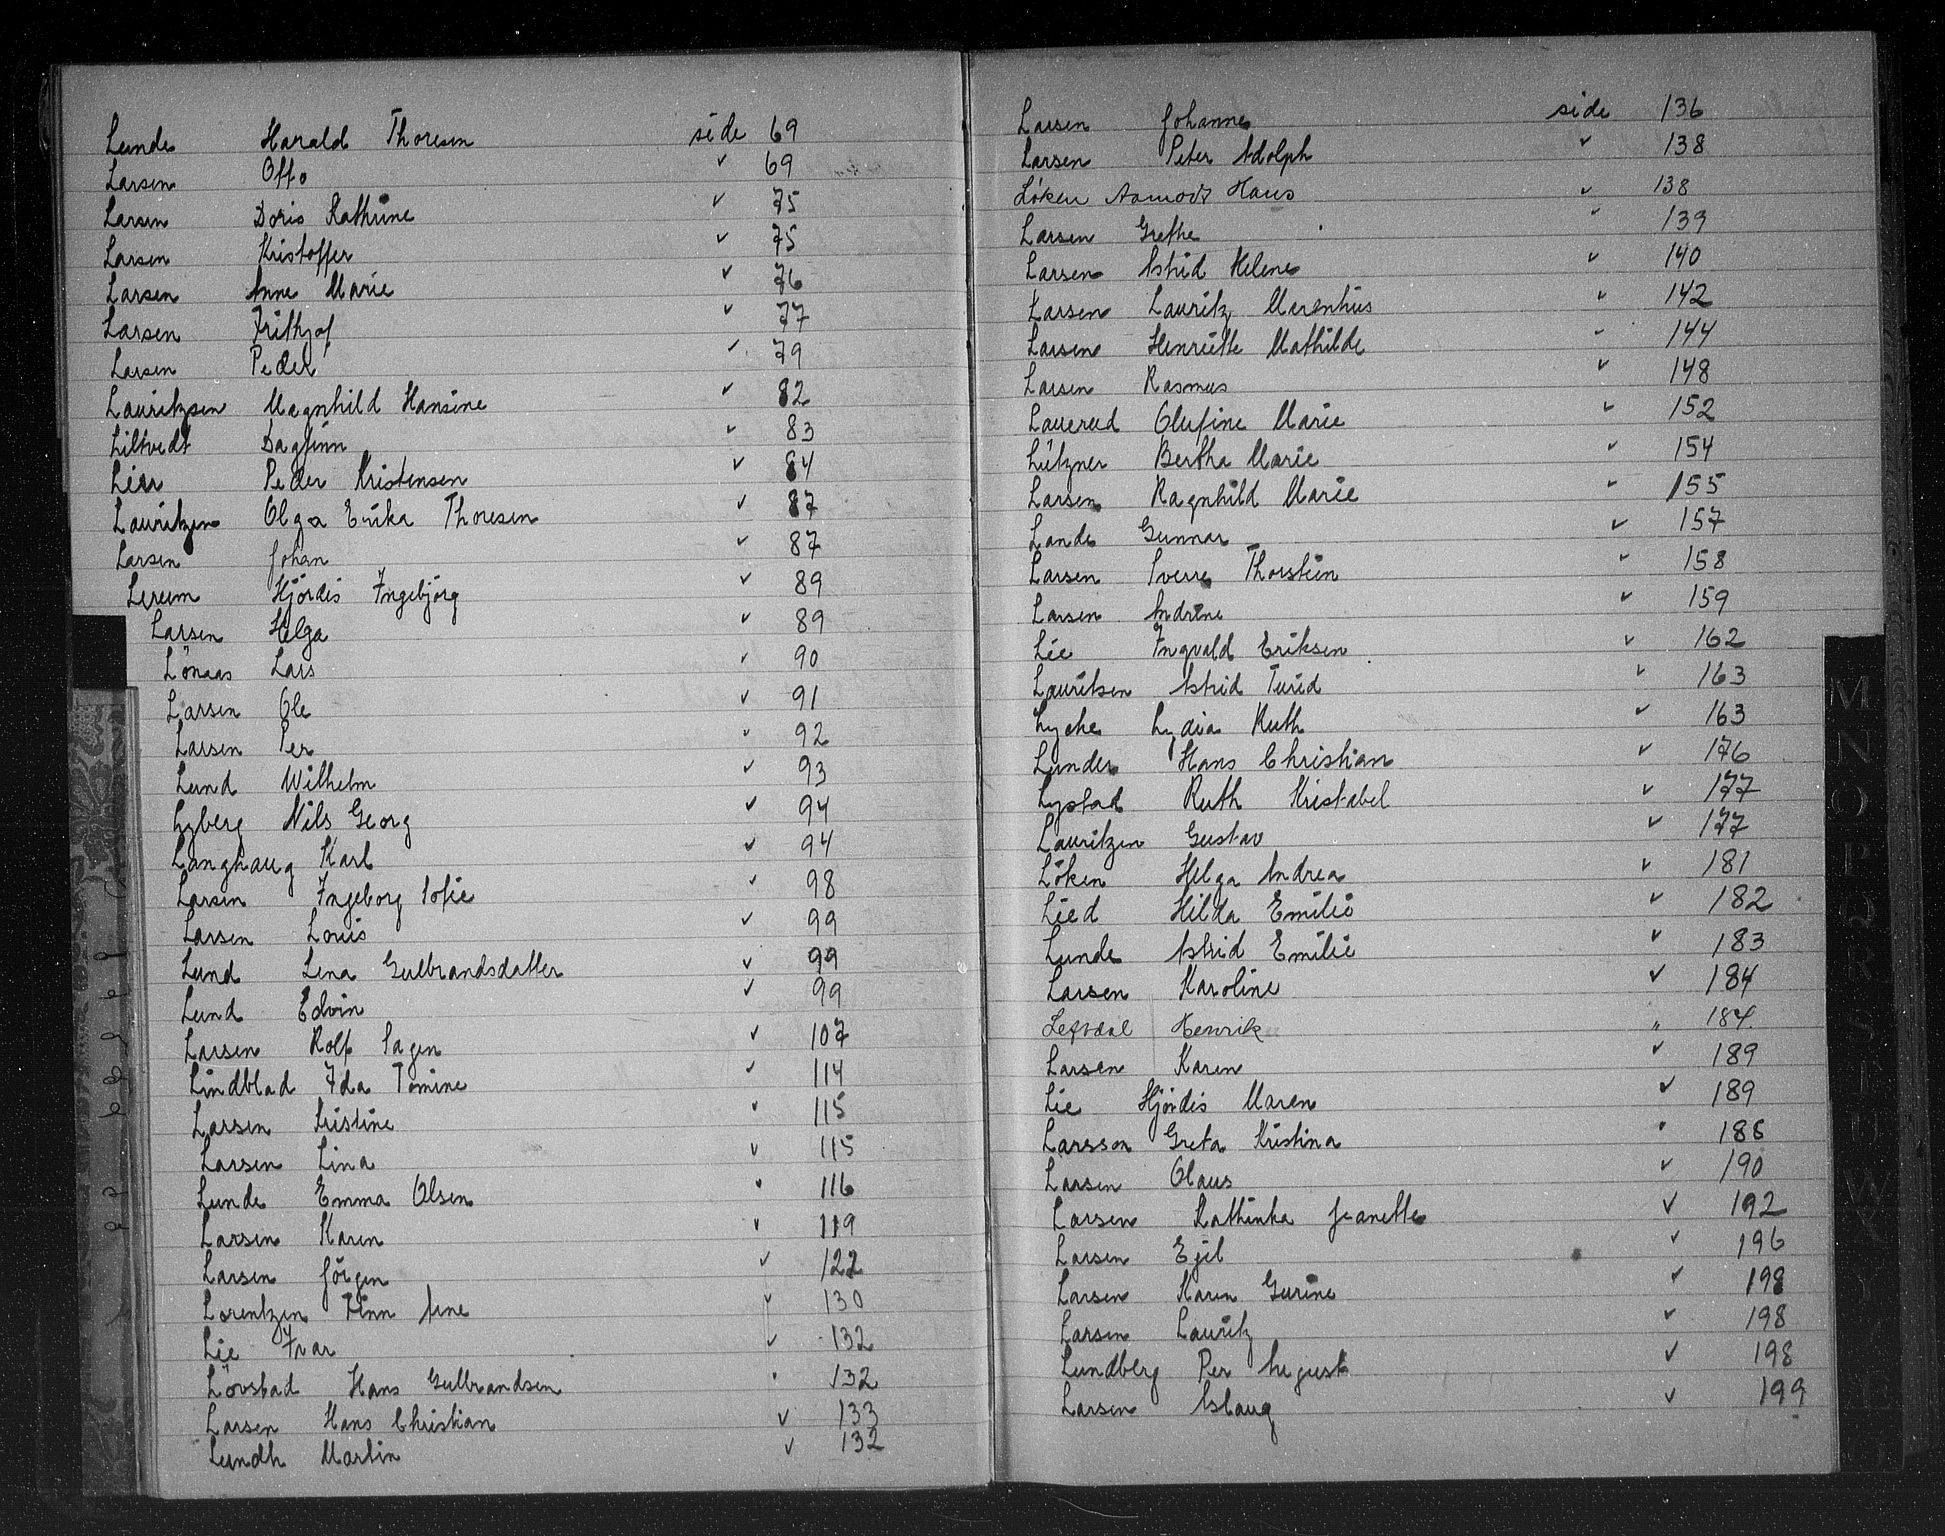 Lunde Harald Thoresen side 69
Larsen Otto " 69
Larsen Doris Kathrine " 75
Larsen Kristoffer " 75
Larsen Anne Marie " 76
Larsen Frithjof " 77
Larsen Peder " 79
Lauritzsen Magnhild Hansine " 82
Liltvedt Dagfinn " 83
Lier Peder Kristensen " 84
Lauritzen Olga Erika Thoresen " 87
Larsen Johan " 87
Lerum Hjördis Ingebjörg " 89
Larsen Helga " 89
Lönaas Lars " 90
Larsen Ole " 91
Larsen Per " 92
Lund Wilhelm " 93
Lyberg Nils Georg " 94
Langhaug Karl " 94
Larsen Ingeborg Sofie " 98
Larsen Louis " 99
Lund Lena Gulbrandsdatter " 99
Lund Edvin " 99
Larsen Rolf Sagen " 107
Lindblad Ida Tomine " 114
Larsen Kristine " 115
Larsen Lina " 115
Lunde Emma Olsen " 116
Larsen Karen " 119
Larsen Jörgen " 122
Lorentzen Finn Arne " 130
Lie Ivar " 132
Lövstad Hans Gulbrandsen " 132
Larsen Hans Christian " 133
Lundh Martin " 132
Larsen Johanne side 136
Larsen Peter Adolph " 138
Løken Aamodt Hans " 138
Larsen Grethe " 139
Larsen Astrid Helene " 140
Larsen Lauritz Marenhius " 142
Larsen Henriette Mathilde " 144
Larsen Rasmus " 148
Lauerud Olufine Marie " 152
Lützner Bertha Marie " 154
Larsen Ragnhild Marie " 155
Lande Gunnar " 157
Larsen Sverre Thorstein " 158
Larsen Andrine " 159
Lie Ingvald Eriksen " 162
Lauritsen Astrid Turid " 163
Lyche Lydia Ruth " 163
Lunder Hans Christian " 176
Lystad Ruth Kristabel " 177
Lauritzen Gustav " 177
Löken Helga Andrea " 181
Lied Hilda Emilie " 182
Lunde Astrid Emilie " 183
Larsen Karoline " 184
Leqvdal Henrik " 184.
Larsen Karen " 189
Lie Hjördis Maren " 189
Larsson Greta Kristina " 188
Larsen Olaus " 190
Larsen Kathinka Jeanette " 192
Larsen Egil " 196
Larsen Karen Gurine " 198
Larsen Lauritz " 198
Lundberg Per August " 198
Larsen Aslaug " 199
M
N
O
P
Q
R
S